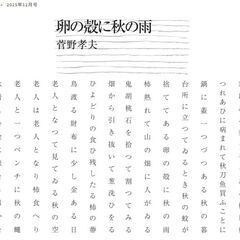 2015年12月号
卵の殻に秋の雨
菅野孝夫
つれあひに病まれて秋刀魚買ふことに
鍋に蓋一つづつある秋の暮
台所に立つてゐるとき秋の蚊が
捨ててある卵の殻に秋の雨
柿熟れて山の畑に人がゐる
鬼胡桃石を拾つて割つてみる
畑から引き抜いて葱洗ひをる
ひよどりの食ひ残したる柿の蔕
鳥渡る財布に少し金ある日
老人となつて見てゐる秋の空
老人は老人となり柿食へり
老人と一つベンチに秋の蠅